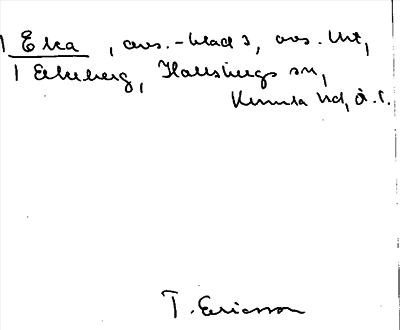 Eka, avs.-blad 3, avs. Unt,
Ekeberg, Hallsbergs sn,
Kumla hd, Ö.l.
T. Ericsson